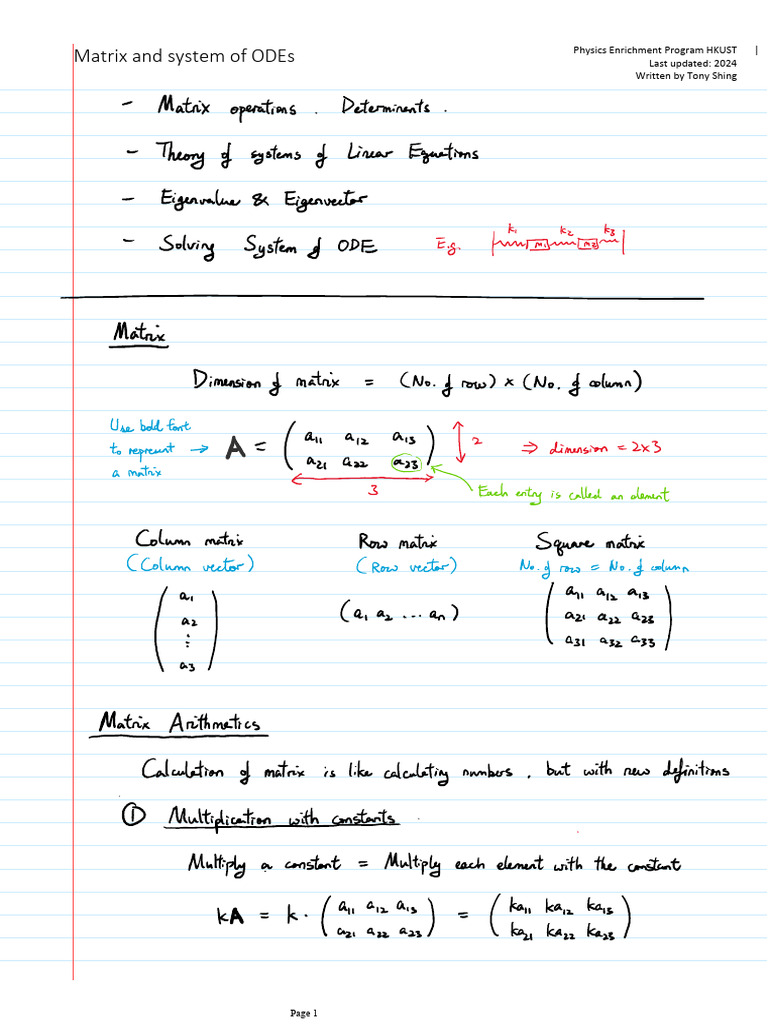 Matrix and system of ODEs
Physics Enrichment Program HKUST
Last updated: 2024
Written by Tony Shing
- Matrix operations . Determinents .
- Theory of systems of Linear Equations
- Eigenvalue & Eigenvector
- Solving System of ODE E.g. k₁ m₁ k₂ m₂ k₃
Matrix
Dimension of matrix = (No. of row) × (No. of column)
Use bold font
to represent →
a matrix
A = ( a₁₁ a₁₂ a₁₃
a₂₁ a₂₂ a₂₃ )
2
⇒ dimension = 2×3
3
Each entry is called an element
Column matrix Row matrix Square matrix
(Column vector) (Row vector) No. of row = No. of column
( a₁
a₂
⋮
a₃ )
(a₁ a₂ ... aₙ)
( a₁₁ a₁₂ a₁₃
a₂₁ a₂₂ a₂₃
a₃₁ a₃₂ a₃₃ )
Matrix Arithmetics
Calculation of matrix is like calculating numbers , but with new definitions
① Multiplication with constants
Multiply a constant = Multiply each element with the constant
kA = k · ( a₁₁ a₁₂ a₁₃ = ( ka₁₁ ka₁₂ ka₁₃
a₂₁ a₂₂ a₂₃ ) ka₂₁ ka₂₂ ka₂₃ )
Page 1